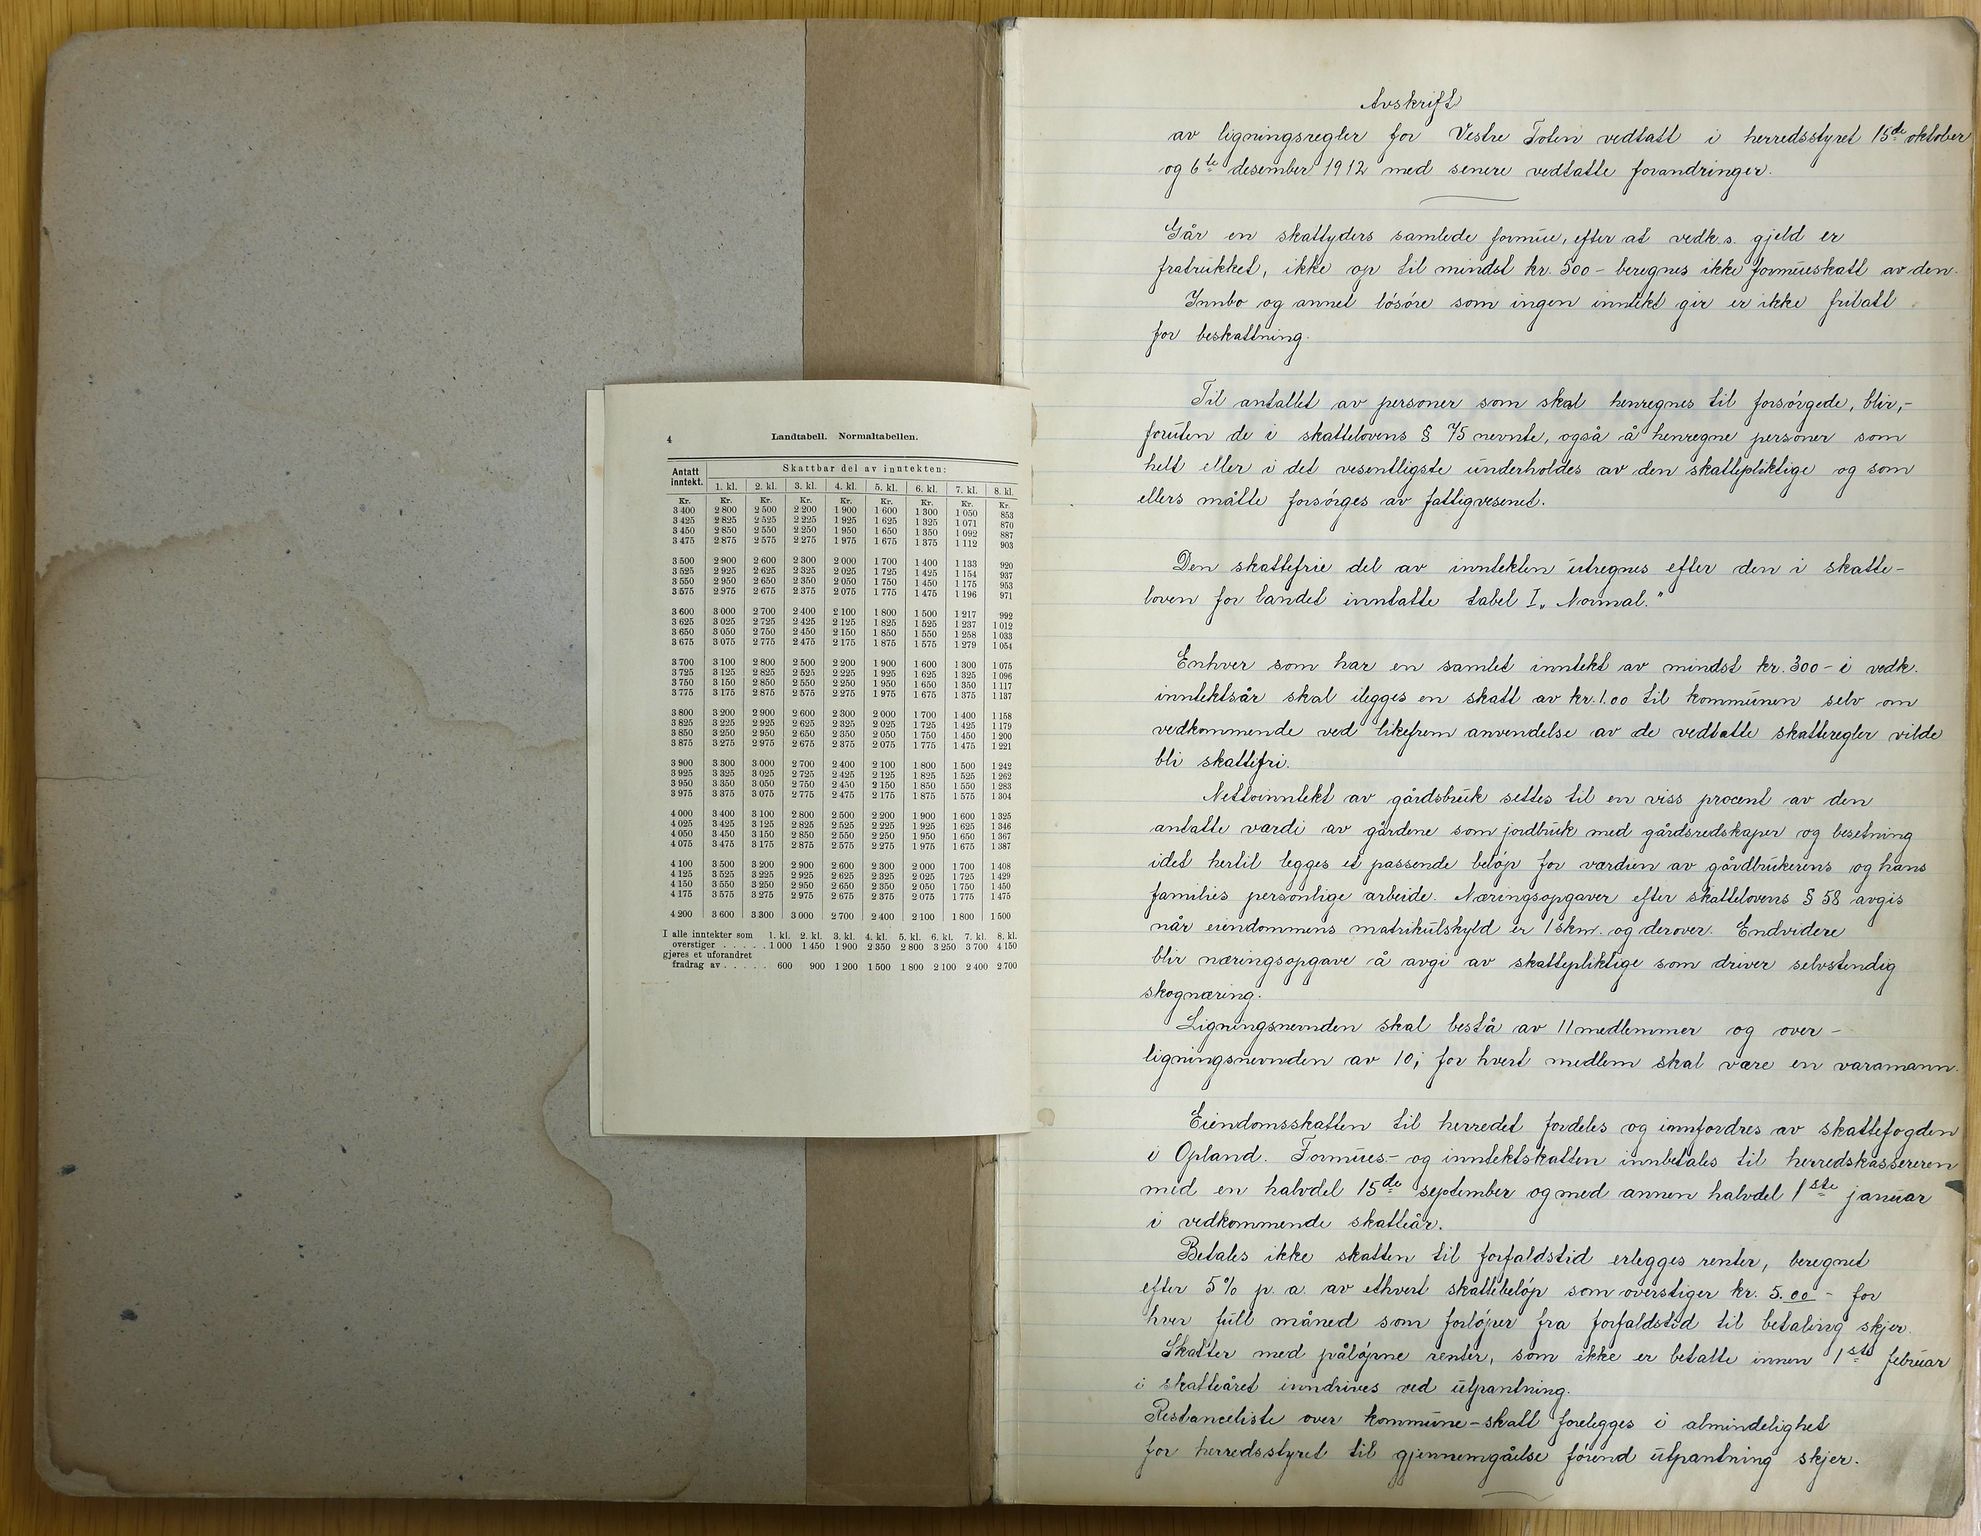 4 Landtabell. Normaltabellen.
Antatt inntekt. Skattbar del av inntekten:
1. kl. 2. kl. 3. kl. 4. kl. 5. kl. 6. kl. 7. kl. 8. kl.
Kr. Kr. Kr. Kr. Kr. Kr. Kr. Kr. Kr.
3 400 2 800 2 500 2 200 1 900 1 600 1 300 1 050 853
3 425 2 825 2 525 2 225 1 925 1 625 1 325 1 071 870
3 450 2 850 2 550 2 250 1 950 1 650 1 350 1 092 887
3 475 2 875 2 575 2 275 1 975 1 675 1 375 1 112 903
3 500 2 900 2 600 2 300 2 000 1 700 1 400 1 133 920
3 525 2 925 2 625 2 325 2 025 1 725 1 425 1 154 937
3 550 2 950 2 650 2 350 2 050 1 750 1 450 1 175 953
3 575 2 975 2 675 2 375 2 075 1 775 1 475 1 196 971
3 600 3 000 2 700 2 400 2 100 1 800 1 500 1 217 992
3 625 3 025 2 725 2 425 2 125 1 825 1 525 1 237 1 012
3 650 3 050 2 750 2 450 2 150 1 850 1 550 1 258 1 033
3 675 3 075 2 775 2 475 2 175 1 875 1 575 1 279 1 054
3 700 3 100 2 800 2 500 2 200 1 900 1 600 1 300 1 075
3 725 3 125 2 825 2 525 2 225 1 925 1 625 1 325 1 096
3 750 3 150 2 850 2 550 2 250 1 950 1 650 1 350 1 117
3 775 3 175 2 875 2 575 2 275 1 975 1 675 1 375 1 137
3 800 3 200 2 900 2 600 2 300 2 000 1 700 1 400 1 158
3 825 3 225 2 925 2 625 2 325 2 025 1 725 1 425 1 179
3 850 3 250 2 950 2 650 2 350 2 050 1 750 1 450 1 200
3 875 3 275 2 975 2 675 2 375 2 075 1 775 1 475 1 221
3 900 3 300 3 000 2 700 2 400 2 100 1 800 1 500 1 242
3 925 3 325 3 025 2 725 2 425 2 125 1 825 1 525 1 262
3 950 3 350 3 050 2 750 2 450 2 150 1 850 1 550 1 283
3 975 3 375 3 075 2 775 2 475 2 175 1 875 1 575 1 304
4 000 3 400 3 100 2 800 2 500 2 200 1 900 1 600 1 325
4 025 3 425 3 125 2 825 2 525 2 225 1 925 1 625 1 346
4 050 3 450 3 150 2 850 2 550 2 250 1 950 1 650 1 367
4 075 3 475 3 175 2 875 2 575 2 275 1 975 1 675 1 387
4 100 3 500 3 200 2 900 2 600 2 300 2 000 1 700 1 408
4 125 3 525 3 225 2 925 2 625 2 325 2 025 1 725 1 429
4 150 3 550 3 250 2 950 2 650 2 350 2 050 1 750 1 450
4 175 3 575 3 275 2 975 2 675 2 375 2 075 1 775 1 475
4 200 3 600 3 300 3 000 2 700 2 400 2 100 1 800 1 500
I alle inntekter som 1. kl. 2. kl. 3. kl. 4. kl. 5. kl. 6. kl. 7. kl. 8. kl.
overstiger . . . . . 1 000 1 450 1 900 2 350 2 800 3 250 3 700 4 150
gjøres et uforandret
fradrag av . . . . . 600 900 1 200 1 500 1 800 2 100 2 400 2 700
Avskrift
av ligningsregler for Vestre Toten vedtatt i herredsstyret 15de oktober
og 6te desember 1912 med senere vedtatte forandringer.
Går en skattyders samlede formue, efter at vedk.s. gjeld er
fratrukket, ikke op til mindst kr. 500 – beregnes ikke formueskatt av den.
Innbo og annet løsøre som ingen inntekt gir er ikke fritatt
for beskattning.
Til antallet av personer som skal henregnes til forsørgede, blir,–
foruten de i skattelovens § 75 nevnte, også å henregne personer som
helt eller i det vesentligste underholdes av den skattepliktige og som
ellers måtte forsørges av fattigvesenet.
Den skattefrie del av inntekten utregnes efter den i skatte–
loven for landet inntatte tabel I „Normal."
Enhver som har en samlet inntekt av mindst kr. 300 – i vedk.
inntektsår skal ilegges en skatt av kr. 1.00 til kommunen selv om
vedkommende ved likefrem anvendelse av de vedtatte skatteregler vilde
bli skattefri.
Nettoinntekt av gårdsbruk settes til en viss procent av den
antatte værdi av gårdene som jordbruk med gårdsredskaper og besetning
idet hertil legges et passende beløp for værdien av gårdbrukerens og hans
families personlige arbeide. Næringsopgaver efter skattelovens § 58 avgis
når eiendommens matrikulskyld er 1 skm. og derover. Endvidere
blir næringsopgave å avgi av skattepliktige som driver selvstendig
skognæring.
Ligningsnevnden skal bestå av 11 medlemmer og over –
ligningsnevnden av 10; for hvert medlem skal være en varamann.
Eiendomsskatten til herredet fordeles og innfordres av skattefogden
i Opland. Formues– og inntektskatten innbetales til herredskassereren
med en halvdel 15de september og med annen halvdel 1ste januar
i vedkommende skatteår.
Betales ikke skatten til forfaldstid erlegges renter, beregnet
efter 5% p. a. av ethvert skattebeløp som overstiger kr. 5.00 – for
hver full måned som forløper fra forfaldstid til betaling skjer.
Skatter med påløpne renter, som ikke er betalte innen 1ste februar
i skatteåret inndrives ved utpantning.
Restanceliste over kommune–skatt forelegges i almindelighet
for herredsstyret til gjennemgåelse førend utpantning skjer.